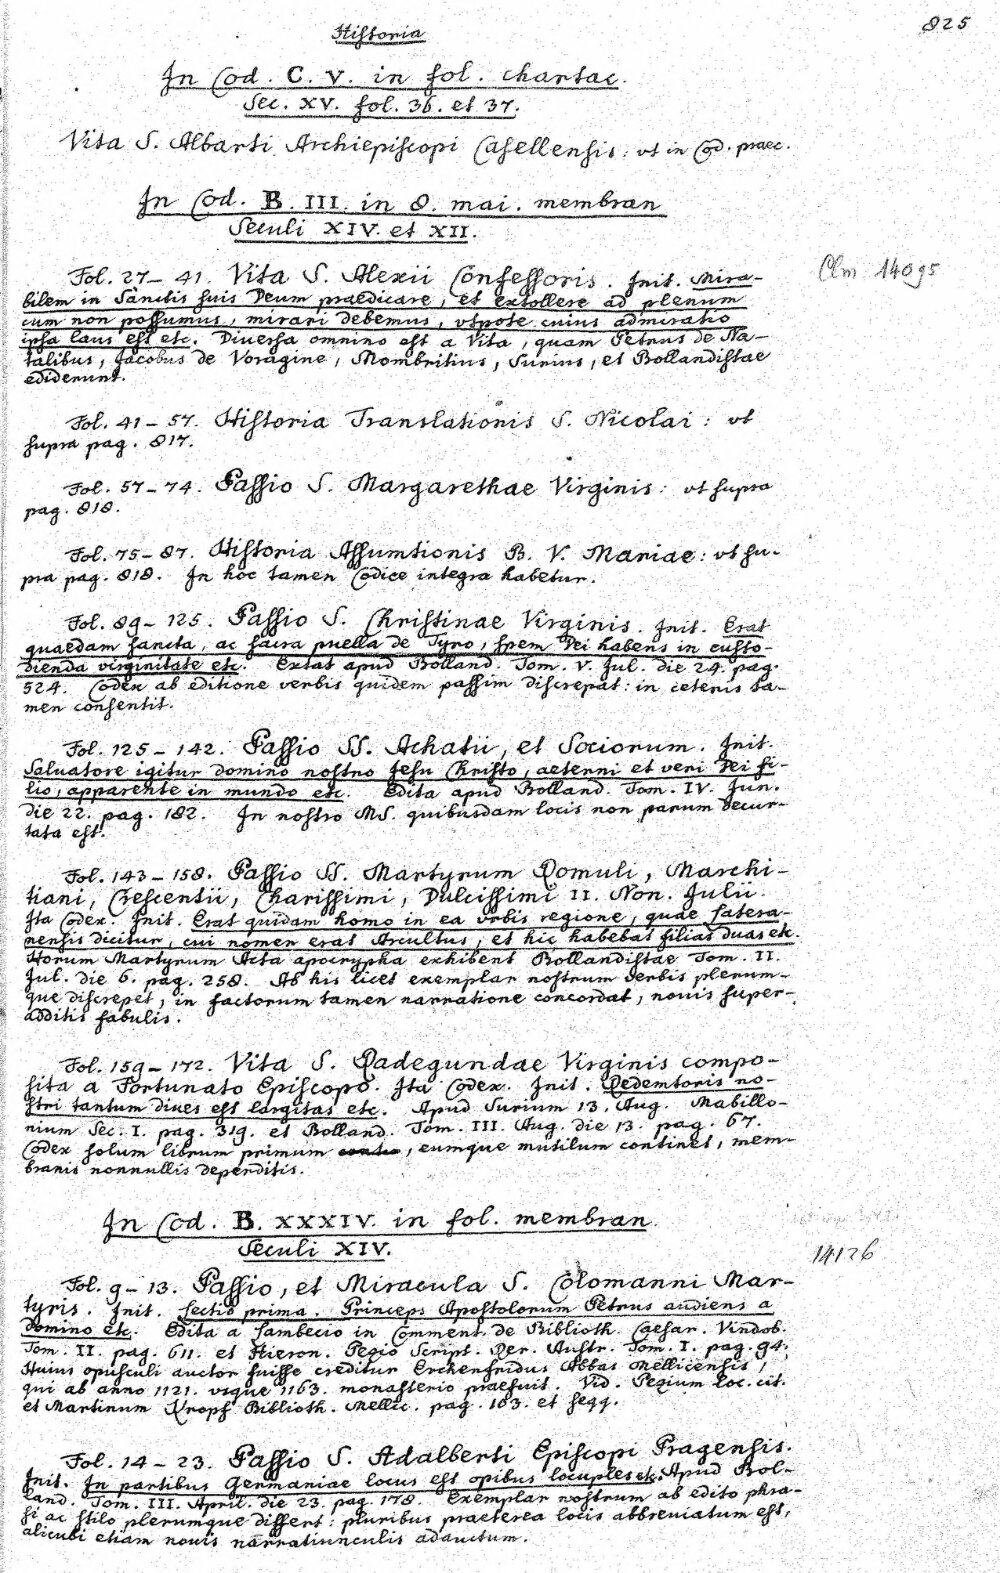 825
Historia
In Cod. C. V. in fol. chartac.
Sec. XV. fol. 36. et 37.
Vita S. Albarti Archiepiscopi Casellensis: vt in Cod. praec.
In Cod. B. III. in 8. mai. membran
Seculi XIV. et XII.
Clm 14095
Fol. 27–41. Vita S. Alexii Confessoris. Init. Mira-
bilem in Sanctis suis Deum praedicare, et extollere ad plenum
cum non possumus, mirari debemus, vtpote cuius admiratio
ipsa laus est etc. Diuersa omnino est a Vita, quam Petrus de Na-
talibus, Jacobus de Voragine, Mombritius, Surius, et Bollandistae
ediderunt.
Fol. 41–57. Historia Translationis S. Nicolai: vt
supra pag. 817.
Fol. 57–74. Passio S. Margarethae Virginis: vt supra
pag. 818.
Fol. 75–87. Historia Assumtionis B. V. Mariae: vt su-
pra pag. 818. In hoc tamen Codice integra habetur.
Fol. 89–125. Passio S. Christinae Virginis. Init. Erat
quaedam sancta, ac sacra puella de Tyro, spem Dei habens in custo-
dienda virginitate etc. Extat apud Bolland. Tom. V. Jul. die 24. pag.
524. Codex ab editione verbis quidem passim discrepat: in ceteris ta-
men consentit.
Fol. 125–142. Passio SS. Achatii, et Sociorum. Init.
Saluatore igitur domino nostro Jesu Christo, aeterni et veri Dei fi-
lio, apparente in mundo etc. Edita apud Bolland. Tom. IV. Jun.
die 22. pag. 182. In nostro MS. quibusdam locis non parum decur-
tata est.
Fol. 143–158. Passio SS. Martyrum Romuli, Marchi-
tiani, Crescentii, Charissimi, Dulcissimi II. Non. Julii.
Ita Codex. Init. Erat quidam homo in ea vrbis regione, quae Latera-
nensis dicitur, cui nomen erat Arcultus, et hic habebat filias duas etc.
Horum Martyrum Acta apocrypha exhibent Bollandistae Tom. II.
Jul. die 6. pag. 258. Ab his licet exemplar nostrum verbis plerum-
que discrepet, in factorum tamen narratione concordat, nouis super-
additis fabulis.
Fol. 159–172. Vita S. Radegundae Virginis compo-
sita a Fortunato Episcopo. Ita Codex. Init. Redemtoris no-
stri tantum diues est largitas etc. Apud Surium 13. Aug. Mabillo-
nium Sec. I. pag. 319. et Bolland. Tom. III. Aug. die 13. pag. 67.
Codex solum librum primum, eumque mutilum continet, mem-
branis nonnullis deperditis.
In Cod. B. XXXIV. in fol. membran.
Seculi XIV.
14126
Fol. 9–13. Passio, et Miracula S. Colomanni Mar-
tyris. Init. Lectio prima. Princeps Apostolorum Petrus audiens a
Domino etc. Edita a Lambecio in Comment. de Biblioth. Caesar. Vindob.
Tom. II. pag. 611. et Hieron. Pegio Script. Rer. Austr. Tom. I. pag. 94.
Huius opusculi auctor fuisse creditur Erchenfridus Abbas Mellicensis,
qui ab anno 1121. vsque 1163. monasterio praefuit. Vid. Pegium loc. cit.
et Martinum Kropf Biblioth. Mellic. pag. 163. et seqq.
Fol. 14–23. Passio S. Adalberti Episcopi Pragensis.
Init. In partibus Germaniae locus est opibus locuples etc. Apud Bol-
land. Tom. III. April. die 23. pag. 178. Exemplar nostrum ab edito phra-
si ac stilo plerumque differt: pluribus praeterea locis abbreuiatum est,
alicubi etiam nouis narratiunculis adauctum.